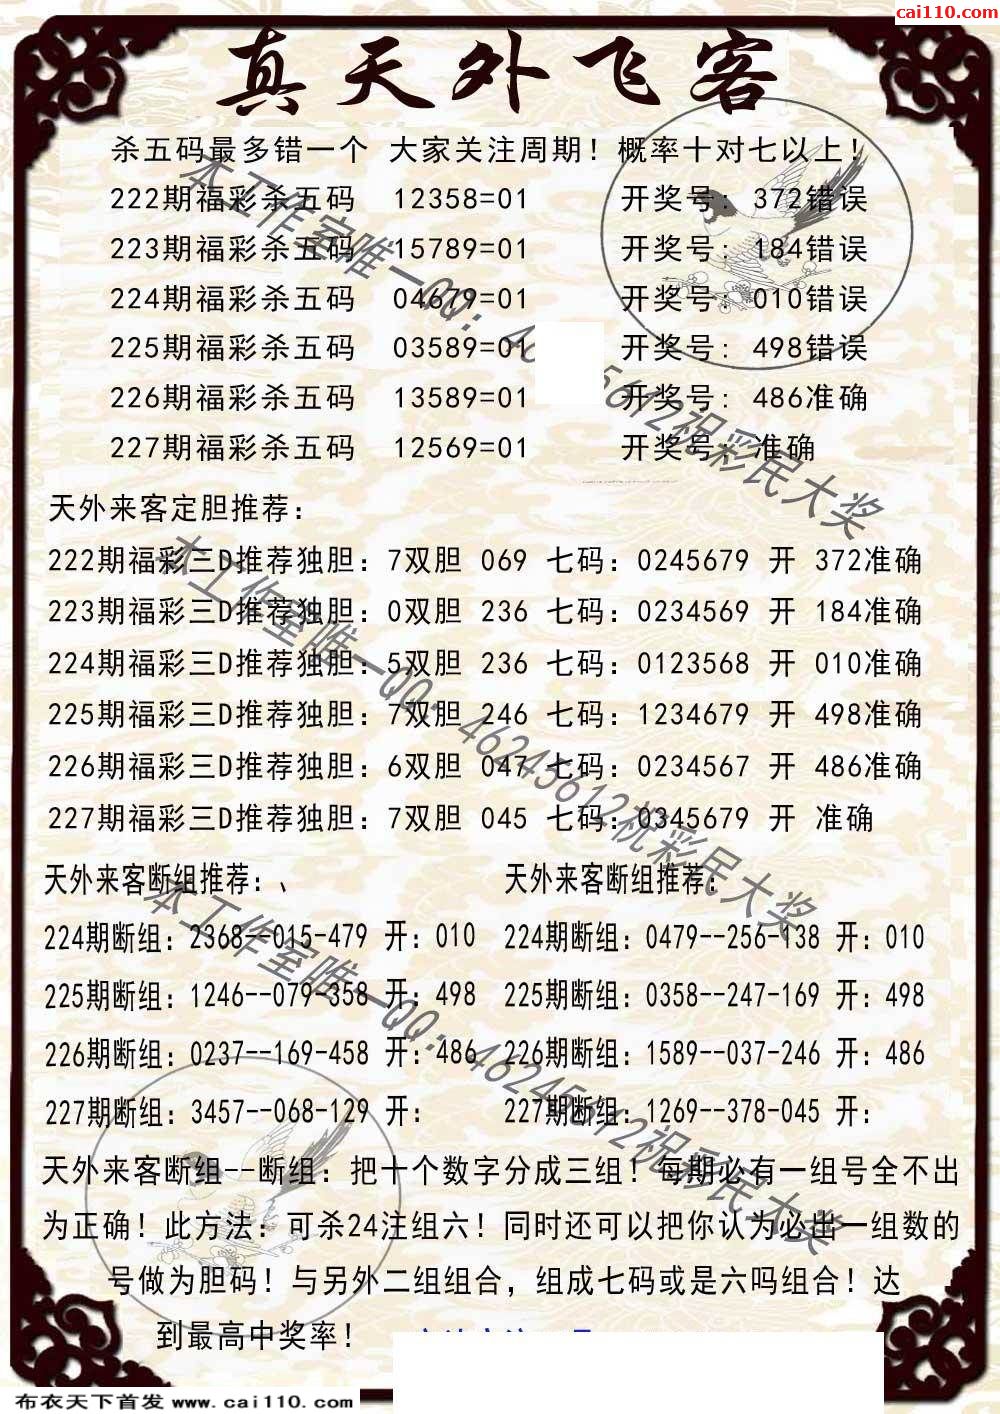 cai110.com
真天外飞客
杀五码最多错一个 大家关注周期！概率十对七以上！
222期福彩杀五码 12358=01 开奖号: 372错误
223期福彩杀五码 15789=01 开奖号: 184错误
224期福彩杀五码 04679=01 开奖号: 010错误
225期福彩杀五码 03589=01 开奖号: 498错误
226期福彩杀五码 13589=01 开奖号: 486准确
227期福彩杀五码 12569=01 开奖号: 准确
天外来客定胆推荐：
222期福彩三D推荐独胆：7双胆 069 七码：0245679 开 372准确
223期福彩三D推荐独胆：0双胆 236 七码：0234569 开 184准确
224期福彩三D推荐独胆：5双胆 236 七码：0123568 开 010准确
225期福彩三D推荐独胆：7双胆 246 七码：1234679 开 498准确
226期福彩三D推荐独胆：6双胆 047 七码：0234567 开 486准确
227期福彩三D推荐独胆：7双胆 045 七码：0345679 开 准确
天外来客断组推荐：、 天外来客断组推荐：
224期断组：2368--015-479 开：010 224期断组：0479--256-138 开：010
225期断组：1246--079-358 开：498 225期断组：0358--247-169 开：498
226期断组：0237--169-458 开：486 226期断组：1589--037-246 开：486
227期断组：3457--068-129 开： 227期断组：1269--378-045 开：
天外来客断组--断组：把十个数字分成三组！每期必有一组号全不出
为正确！此方法：可杀24注组六！同时还可以把你认为必出一组数的
号做为胆码！与另外二组组合，组成七码或是六吗组合！达
到最高中奖率！
本工作室唯一QQ：46245612祝彩民大奖
本工作室唯一QQ：46245612祝彩民大奖
本工作室唯一QQ：46245612祝彩民大奖
布衣天下首发 www.cai110.com